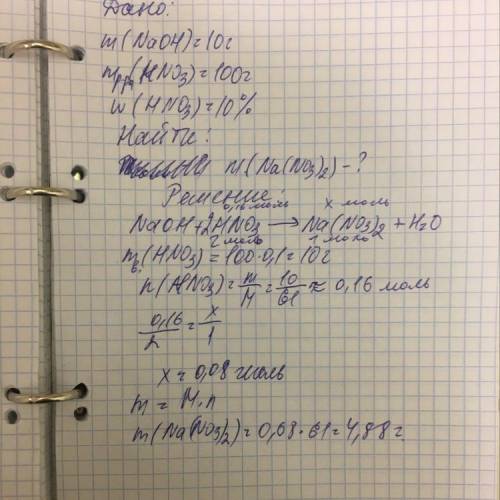 Дано:
m(NaOH)=10г
mр-ра(HNO₃)=100г
w(HNO₃)=10%
Найти:
m(Na(NO₃)₂)-?
Решение:
0,16 моль x моль
NaOH+2HNO₃ → Na(NO₃)₂+H₂O
2 моль 1 моль
mв.(HNO₃)=100·0,1=10г
n(HNO₃)=m/M=10/61≈0,16 моль
0,16/2=x/1
x=0,08 моль
m=M·n
m(Na(NO₃)₂)=0,08·61=4,88г